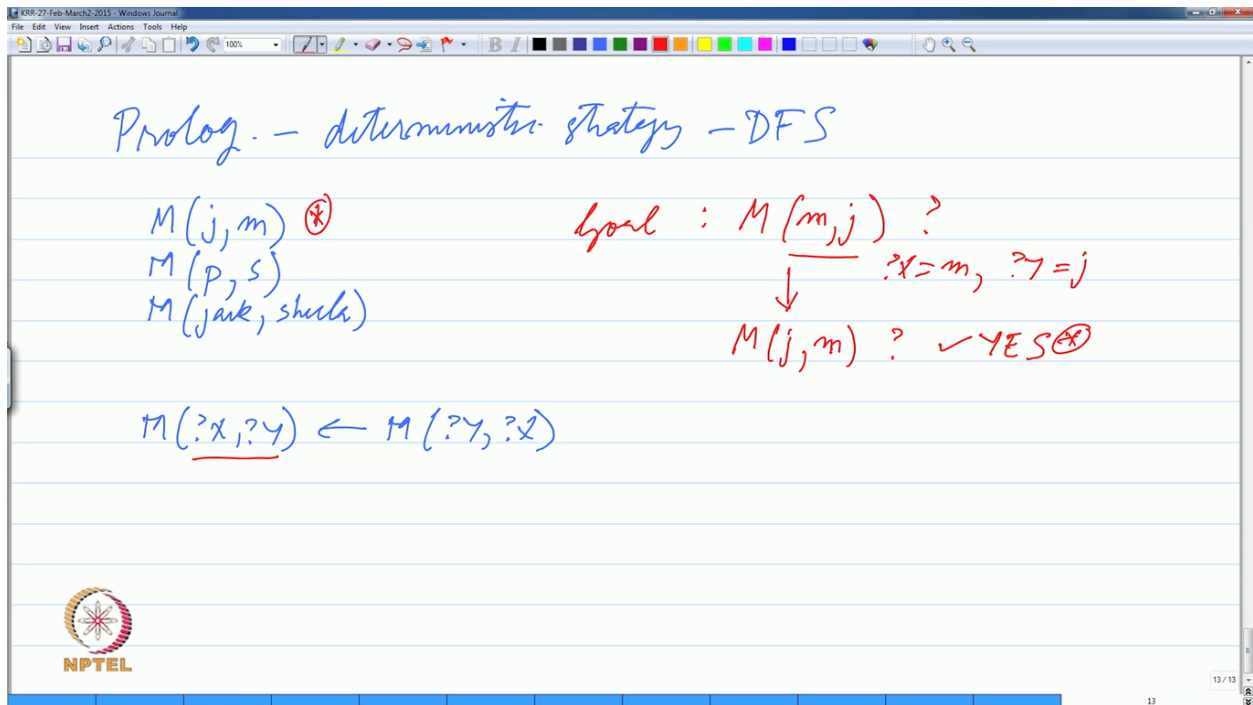 KRR-27-Feb-March2-2015 - Windows Journal
File Edit View Insert Actions Tools Help
100%
B I
Prolog. - deterministic strategy - DFS
M(j,m) *
Goal : M(m,j) ?
M(p,s)
?X=m, ?Y=j
M(jack, sheela)
M(j,m) ? ✓ YES *
M(?X,?Y) ← M(?Y,?X)
NPTEL
13 / 13
13